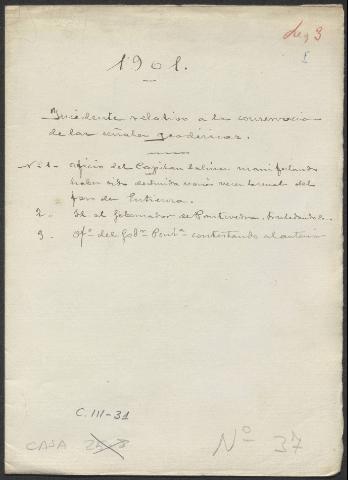 Leg 3
1901.
Incidente relativo a la conservacion
de las señales geodésicas.
Nº 1 - oficio del Capitan Salinas manifestando
haber sido destruida varias veces la señal del
faro de
2. Id al Gobernador de Pontevedra, trasladando
3. Ofº del Gobr Pontª contestando al anterior
C. III-31
CAJA
Nº 37